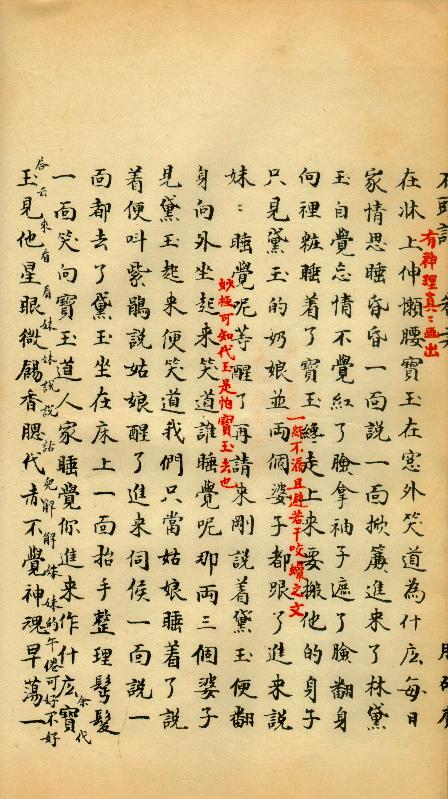 在牀上伸懶腰寶玉在窓外笑道為什庅每日
有神理真〻画出
家情思睡昏昏一面說一面掀簾進來了林黛
玉自覺忘情不覺紅了臉拿袖子遮了臉翻身
向裡粧睡着了寶玉纔走上來要搬他的身子
一絲不漏且避若干咬蠟之文
只見黛玉的奶娘並両個婆子都跟了進來說
妹〻睡覺呢等醒了再請來剛說着黛玉便翻
妙極可知代玉是怕寶玉去也
身向外坐起來笑道誰睡覺呢那両三個婆子
見黛玉起來便笑道我們只當姑娘睡着了說
着便叫紫鵑說姑娘醒了進來伺侯一面說一
面都去了黛玉坐在床上一面抬手整理鬢髮
一面笑向寶玉道人家睡覺你進來作什庅寶
余代
答云來看看妹妹說說話兒解解妹妹的午倦可好不好
玉見他星眼微餳香腮代赤不覺神魂早蕩一